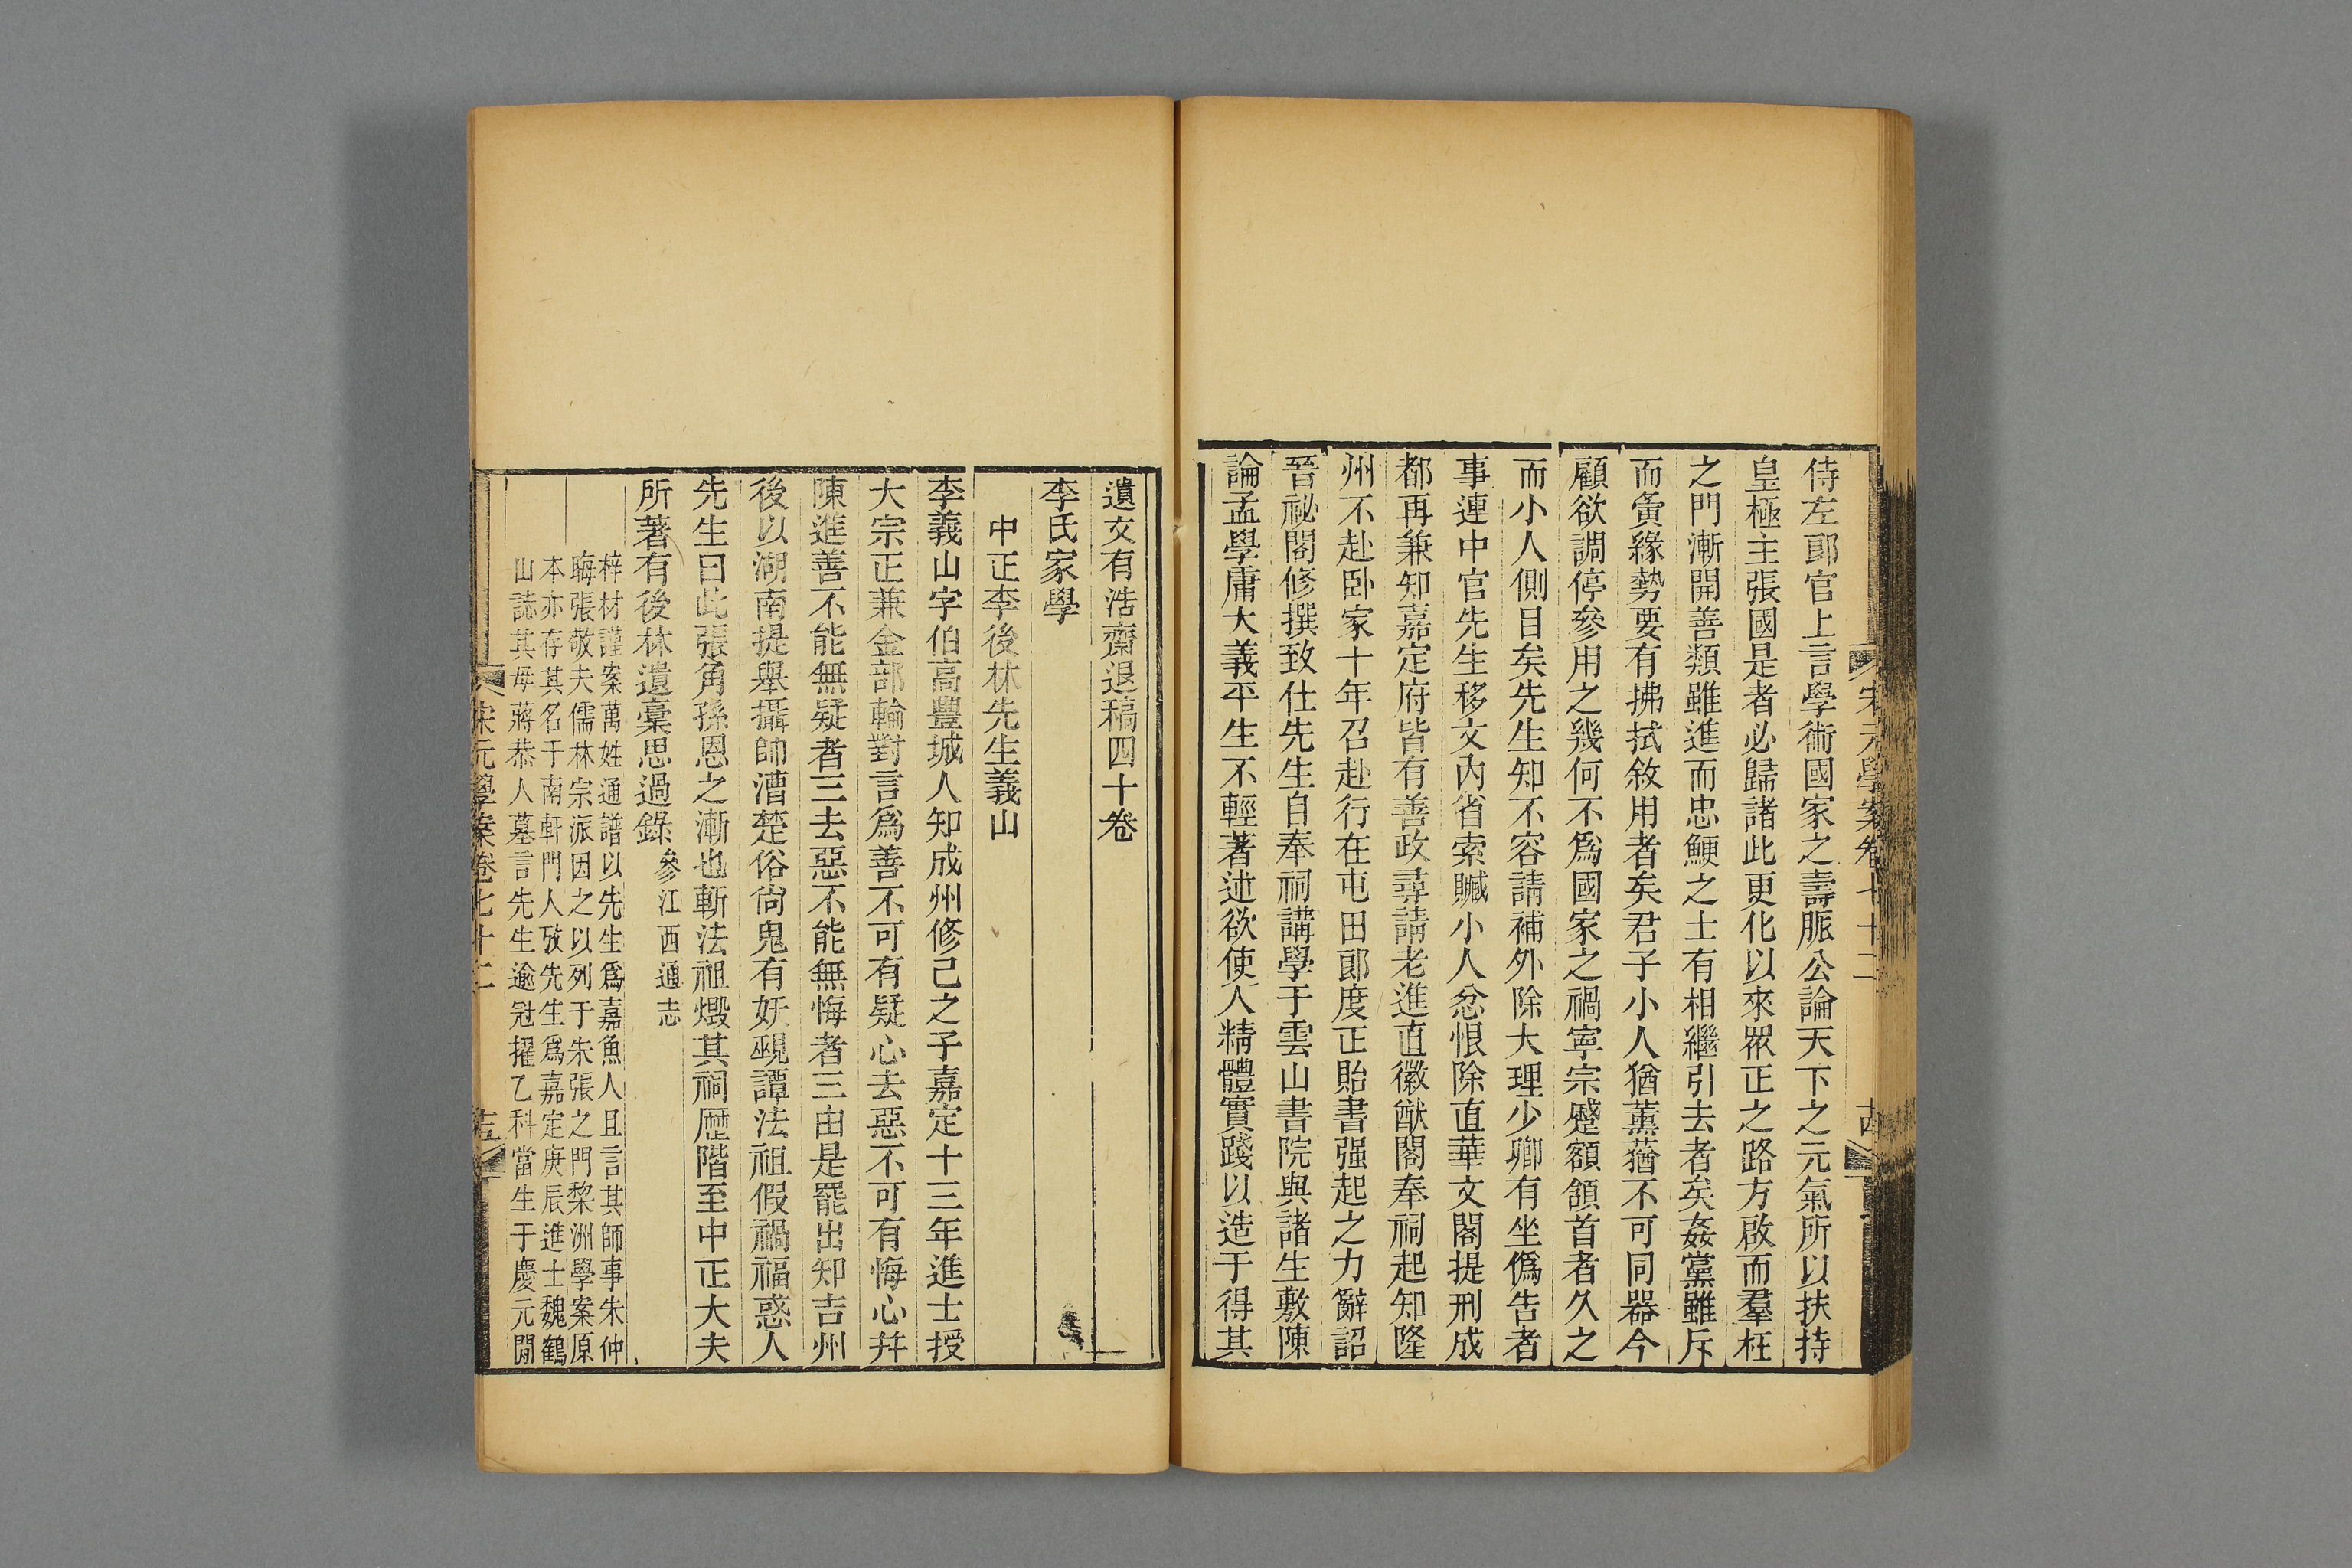 宋元學案卷七十二
侍左郞官上言學術國家之壽脈公論天下之元氣所以扶持
皇極主張國是者必歸諸此更化以來眾正之路方啟而羣枉
之門漸開善類雖進而忠鯁之士有相繼引去者矣姦黨雖斥
而夤緣勢要有拂拭敘用者矣君子小人猶薰蕕不可同器今
顧欲調停參用之幾何不爲國家之禍寧宗蹙額頷首者久之
而小人側目矣先生知不容請補外除大理少卿有坐僞告者
事連中官先生移文內省索贓小人忿恨除直華文閣提刑成
都再兼知嘉定府皆有善政尋請老進直徽猷閣奉祠起知隆
州不赴卧家十年召赴行在屯田郞度正貽書强起之力辭詔
晉祕閣修撰致仕先生自奉祠講學于雲山書院與諸生敷陳
論孟學庸大義平生不輕著述欲使人精體實踐以造于得其
遺文有浩齋退稿四十卷
李氏家學
中正李後林先生義山
李義山字伯高豐城人知成州修己之子嘉定十三年進士授
大宗正兼金部輪對言爲善不可有疑心去惡不可有悔心幷
陳進善不能無疑者三去惡不能無悔者三由是罷出知吉州
後以湖南提舉攝帥漕楚俗尙鬼有妖覡譚法祖假禍福惑人
先生曰此張角孫恩之漸也斬法祖燬其祠歷階至中正大夫
所著有後林遺稾思過錄參江西通志
梓材謹案萬姓通譜以先生爲嘉魚人且言其師事朱仲
晦張敬夫儒林宗派因之以列于朱張之門黎洲學案原
本亦存其名于南軒門人攷先生爲嘉定庚辰進士魏鶴
山誌其母蔣恭人墓言先生逾冠擢乙科當生于慶元閒
宋元學案卷七十二